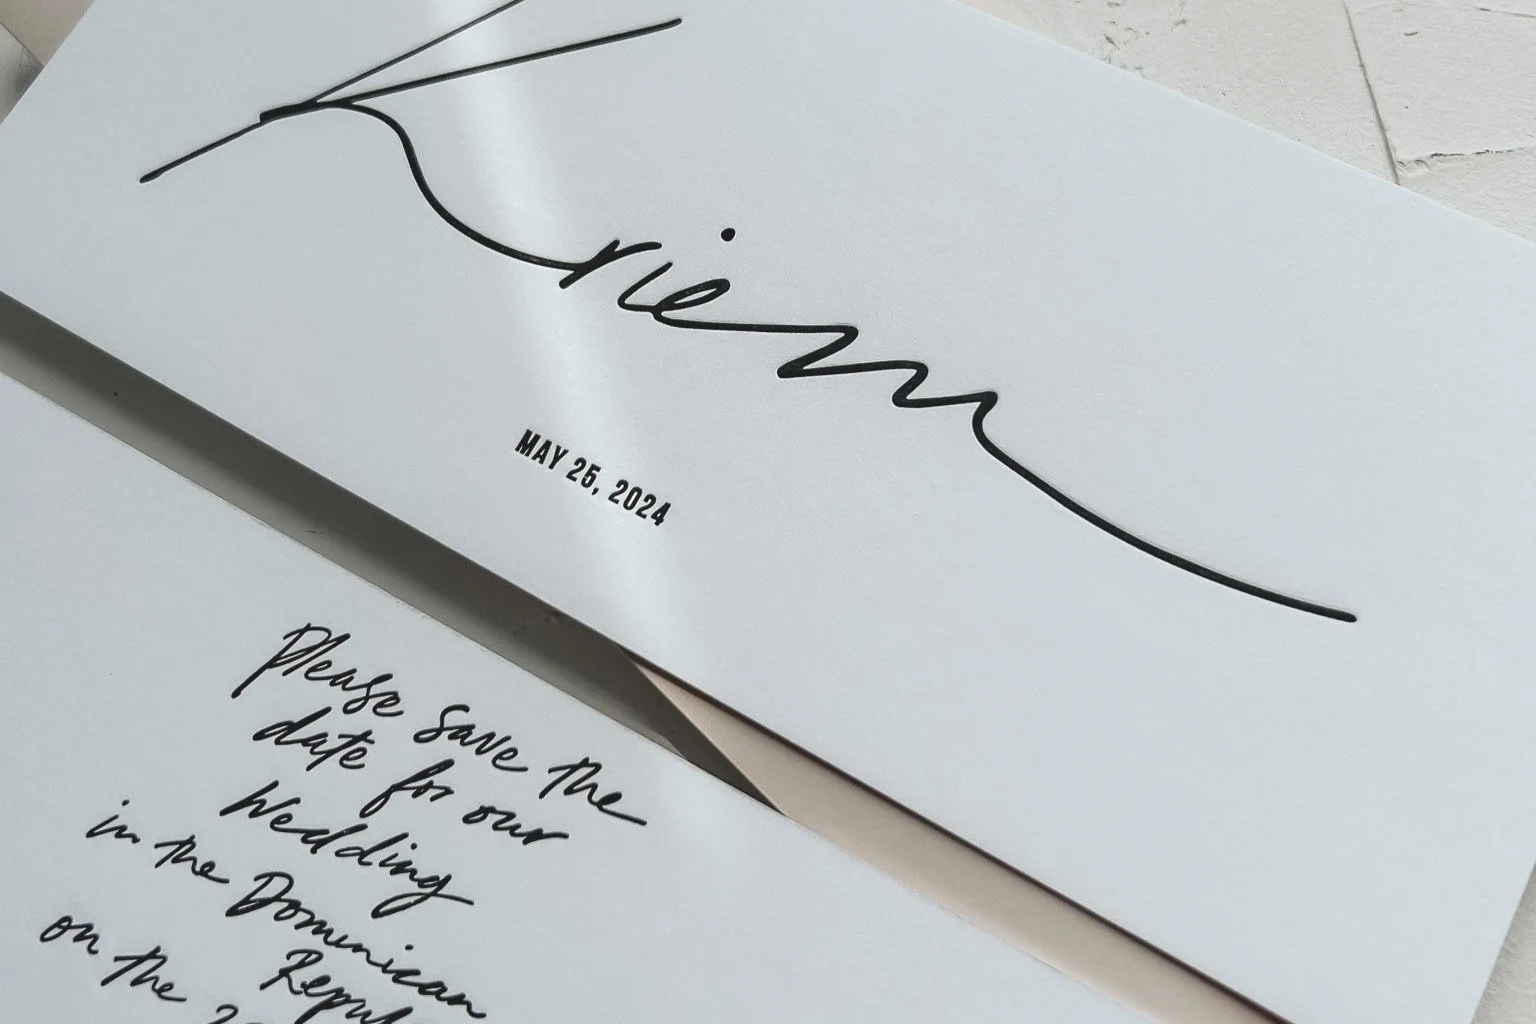 Kriem
MAY 25, 2024
Please save the
date for our
Wedding
in the Dominican
on the